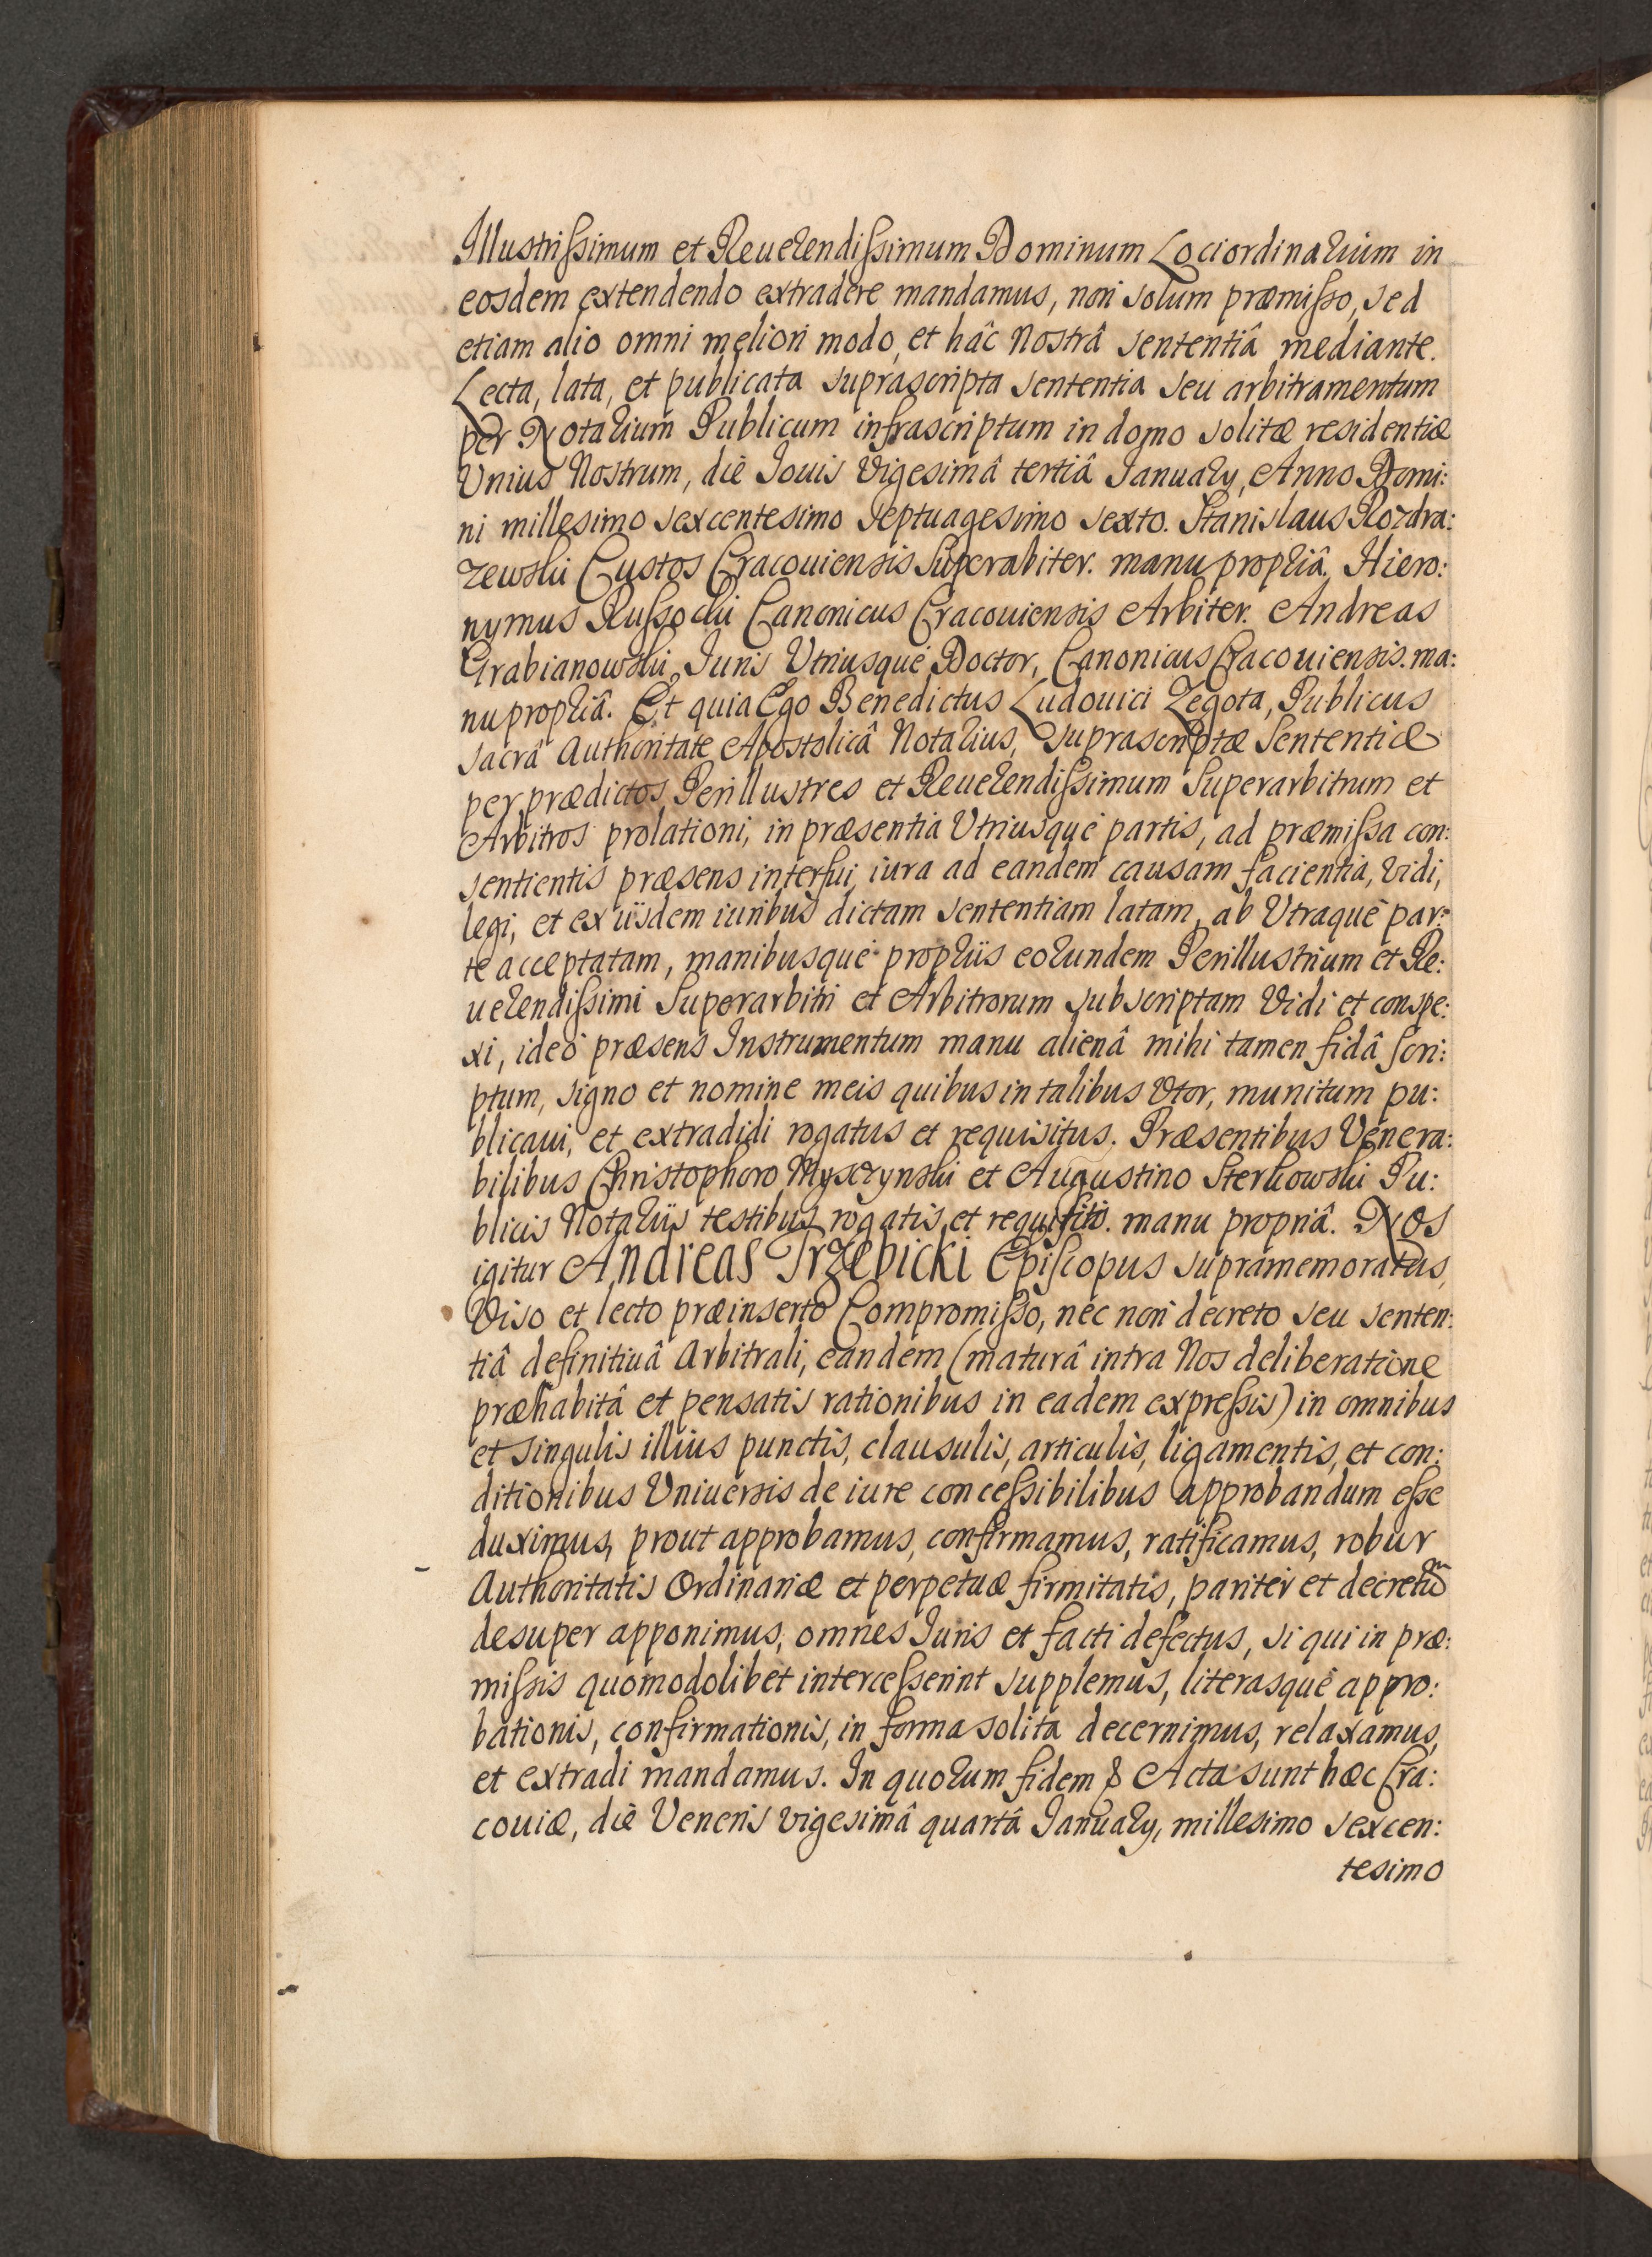 Illustrissimum et Reuerendissimum Dominum Lociordinarium in
eosdem extendendo extradere mandamus, non solum præmisso, sed
etiam alio omni meliori modo, et hâc Nostrâ sententiâ mediante.
Lecta, lata, et publicata suprascripta sententia seu arbitramentum
per Notarium Publicum infrascriptum in domo solitæ residentiæ
Unius Nostrum, die Iouis vigesimâ tertiâ Ianuary, Anno Domi:
ni millesimo sexcentesimo septuagesimo sexto. Stanislaus Rozdra:
zewski Custos Cracouiensis Superabiter. manu propriâ, Hiero:
nymus Russocki Canonicus Cracouiensis Arbiter. Andreas
Grabianowski, Iuris Utriusque Doctor, Canonicus Cracouiensis. ma:
nu propriâ. Et quia Ego Benedictus Ludouici Zegota, Publicus
Sacrâ Authoritate Apostolicâ Notarius, suprascriptæ Sententiæ
per prædictos Perillustres et Reuerendissimum Superarbitrum et
Arbitros prolationi, in præsentia Utriusque partis, ad præmissa con:
sentientis præsens interfui, iura ad eandem causam facientia, vidi,
legi, et ex iisdem iuribus dictam sententiam latam, ab Utraque par:
te acceptatam, manibusque proprijs eorundem Perillustrium et Re:
uerendissimi Superarbitri et Arbitrorum subscriptam vidi et conspe:
xi, ideo præsens Instrumentum manu alienâ mihi tamen fidâ scri:
ptum, signo et nomine meis quibus in talibus utor, munitum pu:
blicaui, et extradidi rogatus et requisitus. Præsentibus Venera:
bilibus Christophoro Myszynski et Augustino Sterkowski Pu:
blicis Notarijs testibus rogatis, et requisitis. manu propriâ. Nos
igitur Andreas Trzebicki Episcopus supramemoratus,
Viso et lecto præinserto Compromisso, nec non decreto seu senten:
tiâ definitiuâ Arbitrali, eandem (maturâ intra Nos deliberatione
præhabitâ et pensatis rationibus in eadem expressis) in omnibus
et singulis illius punctis, clausulis, articulis, ligamentis, et con:
ditionibus Uniuersis de iure concessibilibus approbandum esse
duximus, prout approbamus, confirmamus, ratificamus, robur
Authoritatis Ordinariæ et perpetuæ firmitatis, pariter et decretum
desuper apponimus, omnes Iuris et facti defectus, si qui in præ:
missis quomodolibet intercesserint supplemus, literasque appro:
bationis, confirmationis, in forma solita decernimus, relaxamus,
et extradi mandamus. In quorum fidem & Acta sunt hæc Cra:
couiæ, die Veneris vigesimâ quartâ Ianuary, millesimo sexcen:
tesimo